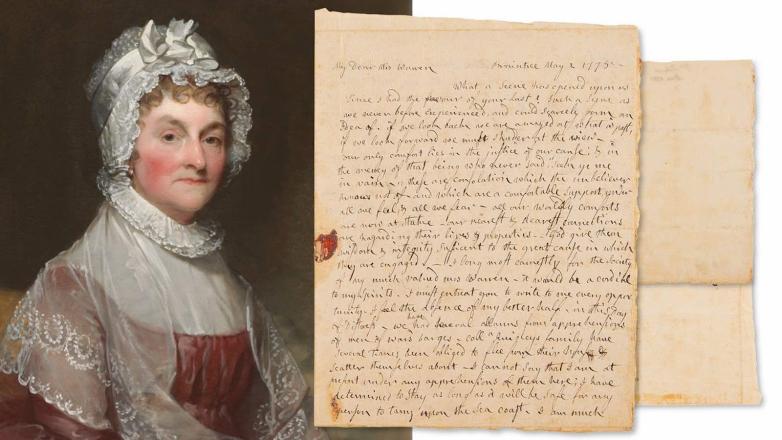 My Dear Mrs Warren Braintree May 2 1775
What a Scene has opened upon us
Since I had the favour of your last! Such a Scene as
we never before Experienced, and could scarcely form an
Idea of. if we look back we are amazed at what is past,
if we look forward we must shudder at the view.
our only comfort lies in the justice of our cause; & in
the mercy of that being who never said, "seek ye me
in vain. these are consolation which the unbeliever
knows not of and which are a comfortable support, under
all we feel, & all we fear. all our worldly comforts
are now at stake our nearest & dearest connections
are hazarding their lives & properties. God give them
wisdom & integrity sufficent to the great cause in which
they are engaged. I long most earnestly for the Society
of my much valued mrs Warren it would be a cordial
to my spirits. I must entreat you to write to me every oppor
tunity. I feel the absence of my better half, in this Day
of Distress. we have had several allarms from apprehensions
of men of wars barges. Coll Quincys family have
several times been obliged to flee from their &
scatter themselves about. I cannot say that I am at
present under any apprehensions of them here; I have
determined to stay as long as it will be safe for any
person to tarry upon the Sea coast. I am much